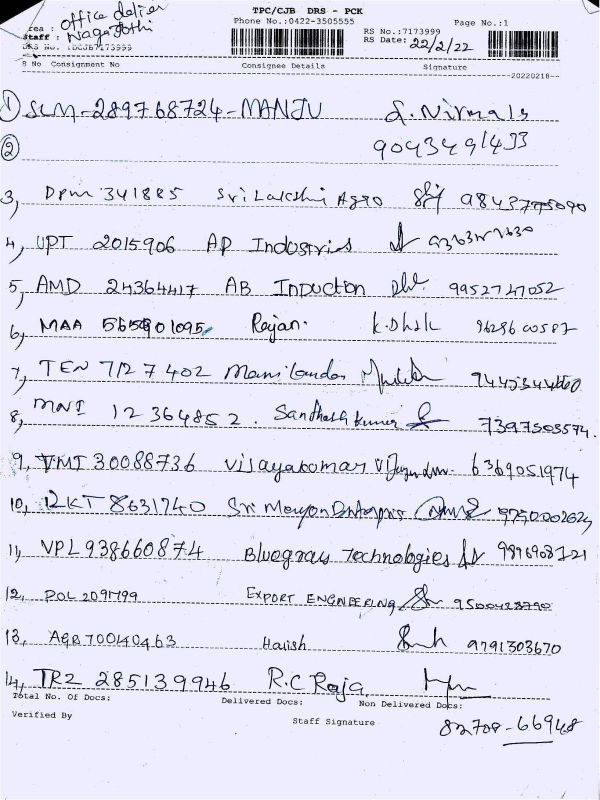 TPC/CJB DRS - PCK
office deliver
rea :
Phone No.:0422-3505555
Page No.:1
staff : Nagajothi
RS No.:7173999
DRS No. :DCJB7173999
RS Date: 22/2/22
S No Consignment No Consignee Details Signature
--20220218--
1) SLM-289768724-MANJU S. Nirmala
2) 9043491433
3, DPM 341885 Sri Lakshi Agro
4, UPT 2015906 AP Industries
5, AMD 24364417 AB Induction 9952747052
6, MAA Rajan. K.Dhak
7, TEN 7127402
8, MNI 12364852. Santhosh kumar 7397503574.
9, VMI 30088736 Vijayakumar 6369051974
10, RKT 8631740 Sri 9750002629
11, VPL938660874 Bluegrass Technologies
12, EXPORT ENGINEERING
13, AGR700140463 Harish 9791303670
14, TRZ 285139946 R.C Raja
Total No. Of Docs: Delivered Docs: Non Delivered Docs:
Verified By Staff Signature
82708-66948